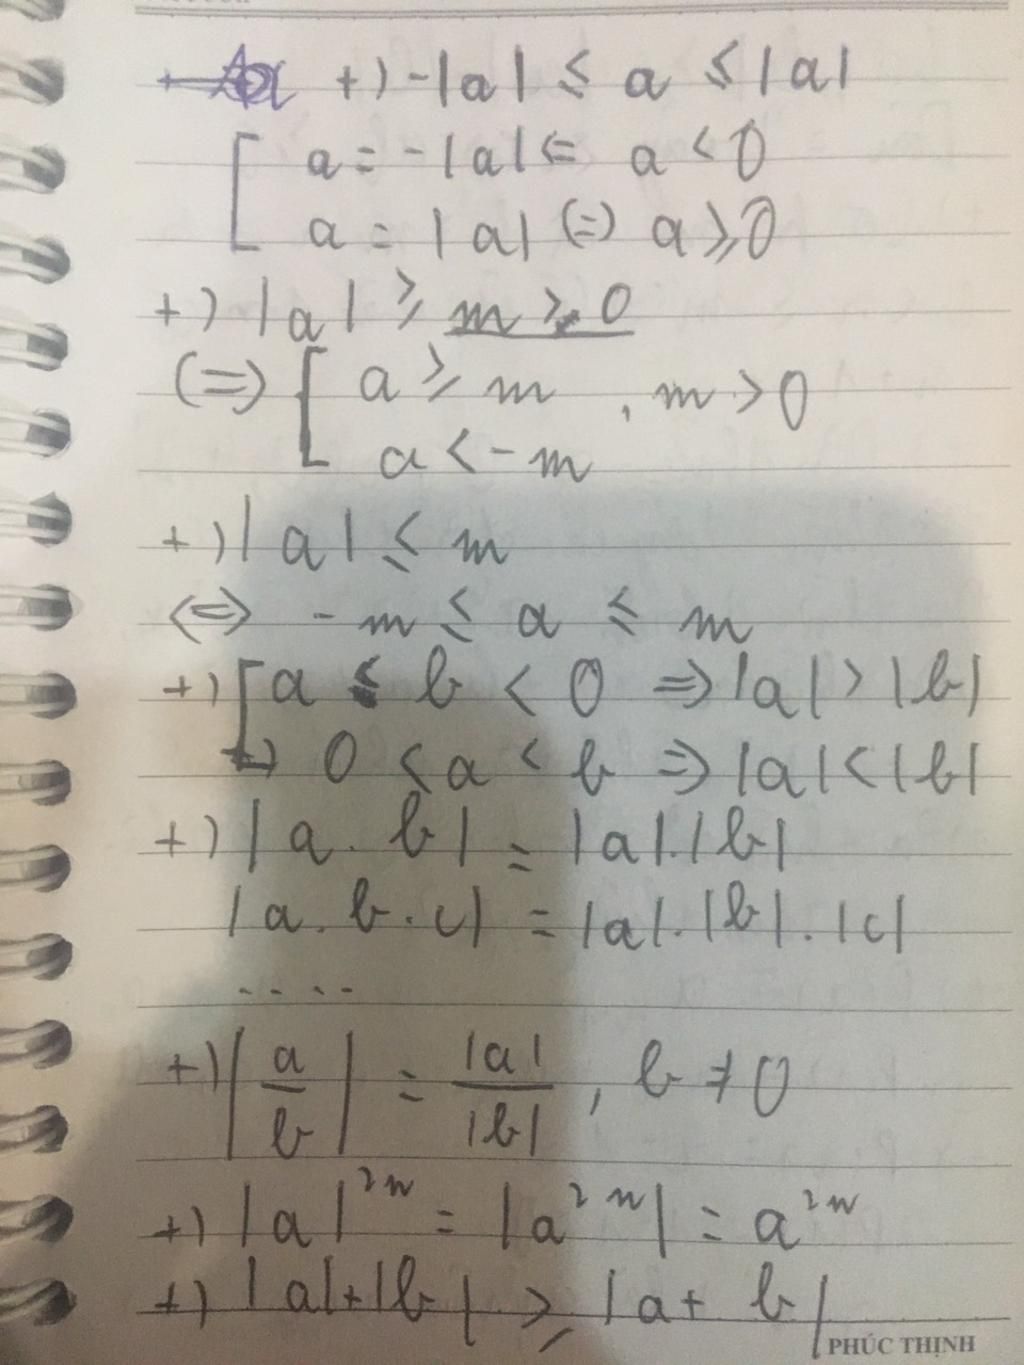 +) -|a| ≤ a ≤ |a|
[ a = -|a| <= a < 0
a = |a| (=) a ≥ 0
+) |a| ≥ m > 0
(=) [ a ≥ m , m > 0
a < -m
+) |a| ≤ m
<=> -m ≤ a ≤ m
+) [ a < b < 0 => |a| > |b|
0 < a < b => |a| < |b|
+) |a . b| = |a| . |b|
|a . b . c| = |a| . |b| . |c|
....
+) |a/b| = |a|/|b| , b ≠ 0
+) |a|²ⁿ = |a²ⁿ| = a²ⁿ
+) |a| + |b| ≥ |a + b|
PHÚC THỊNH